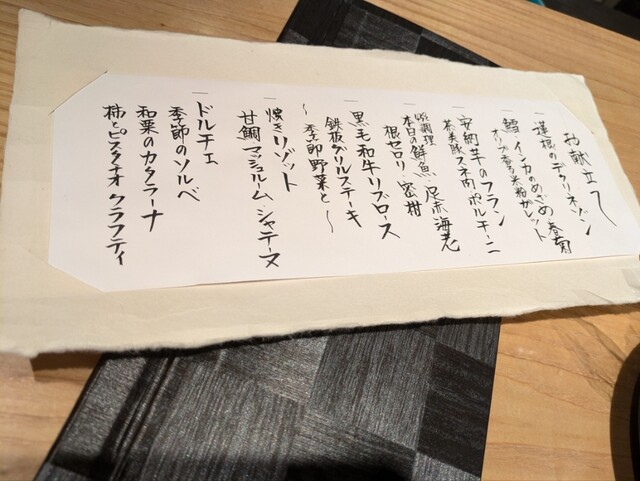 お献立て
一 蓮根のデクリネゾン
一 鱈 インカのめざめ 春菊
オリーブ香る米粉ガレット
一 安納芋のフラン
茶美豚スネ肉 ポルチーニ
一 炉調理
本日の鮮魚 足赤海老
根セロリ 蜜柑
一 黒毛和牛リブロース
鉄板グリルステーキ
〜 季節野菜と 〜
一 焼きリゾット
甘鯛 マッシュルーム シャテーヌ
一 ドルチェ
季節のソルベ
和栗のカタラーナ
柿とピスタチオ クラフティ